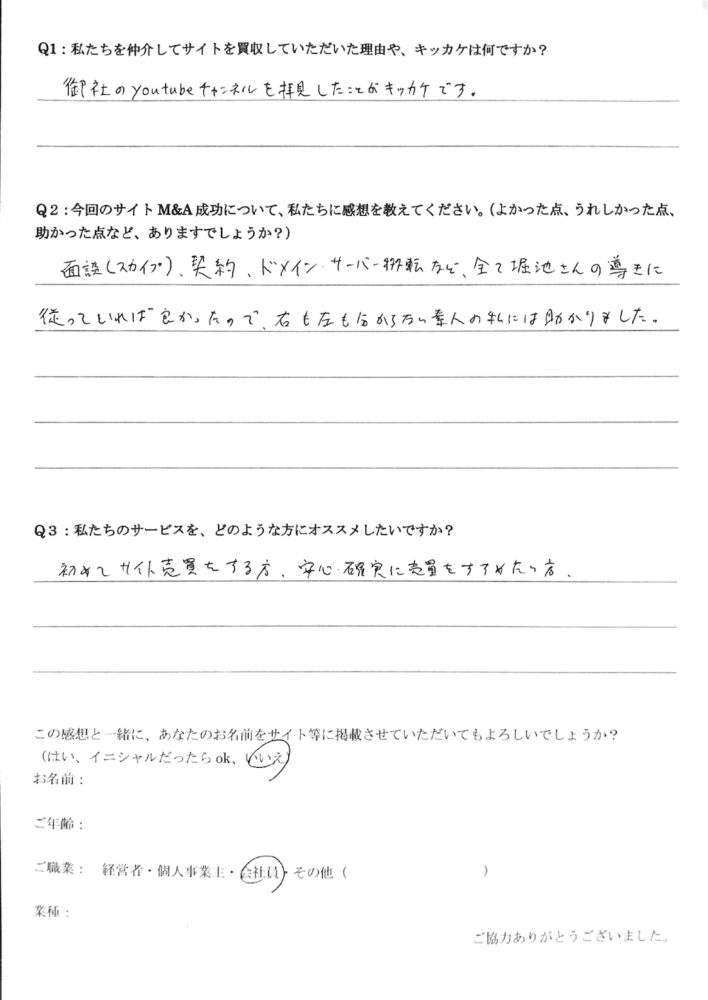 Q1：私たちを仲介してサイトを買収していただいた理由や、キッカケは何ですか？
御社のyoutubeチャンネルを拝見したことがキッカケです。
Q２：今回のサイト M&A 成功について、私たちに感想を教えてください。（よかった点、うれしかった点、
助かった点など、ありますでしょうか？）
面談（スカイプ）、契約、ドメイン・サーバー移転など、全て堀池さんの導きに
従っていれば良かったので、右も左も分からない素人の私には助かりました。
Q３：私たちのサービスを、どのような方にオススメしたいですか？
初めてサイト売買をする方、安心・確実に売買をすすめたい方、
この感想と一緒に、あなたのお名前をサイト等に掲載させていただいてもよろしいでしょうか？
（はい、イニシャルだったら ok、いいえ）
お名前：
ご年齢：
ご職業： 経営者・個人事業主・会社員・その他（ ）
業種：
ご協力ありがとうございました。